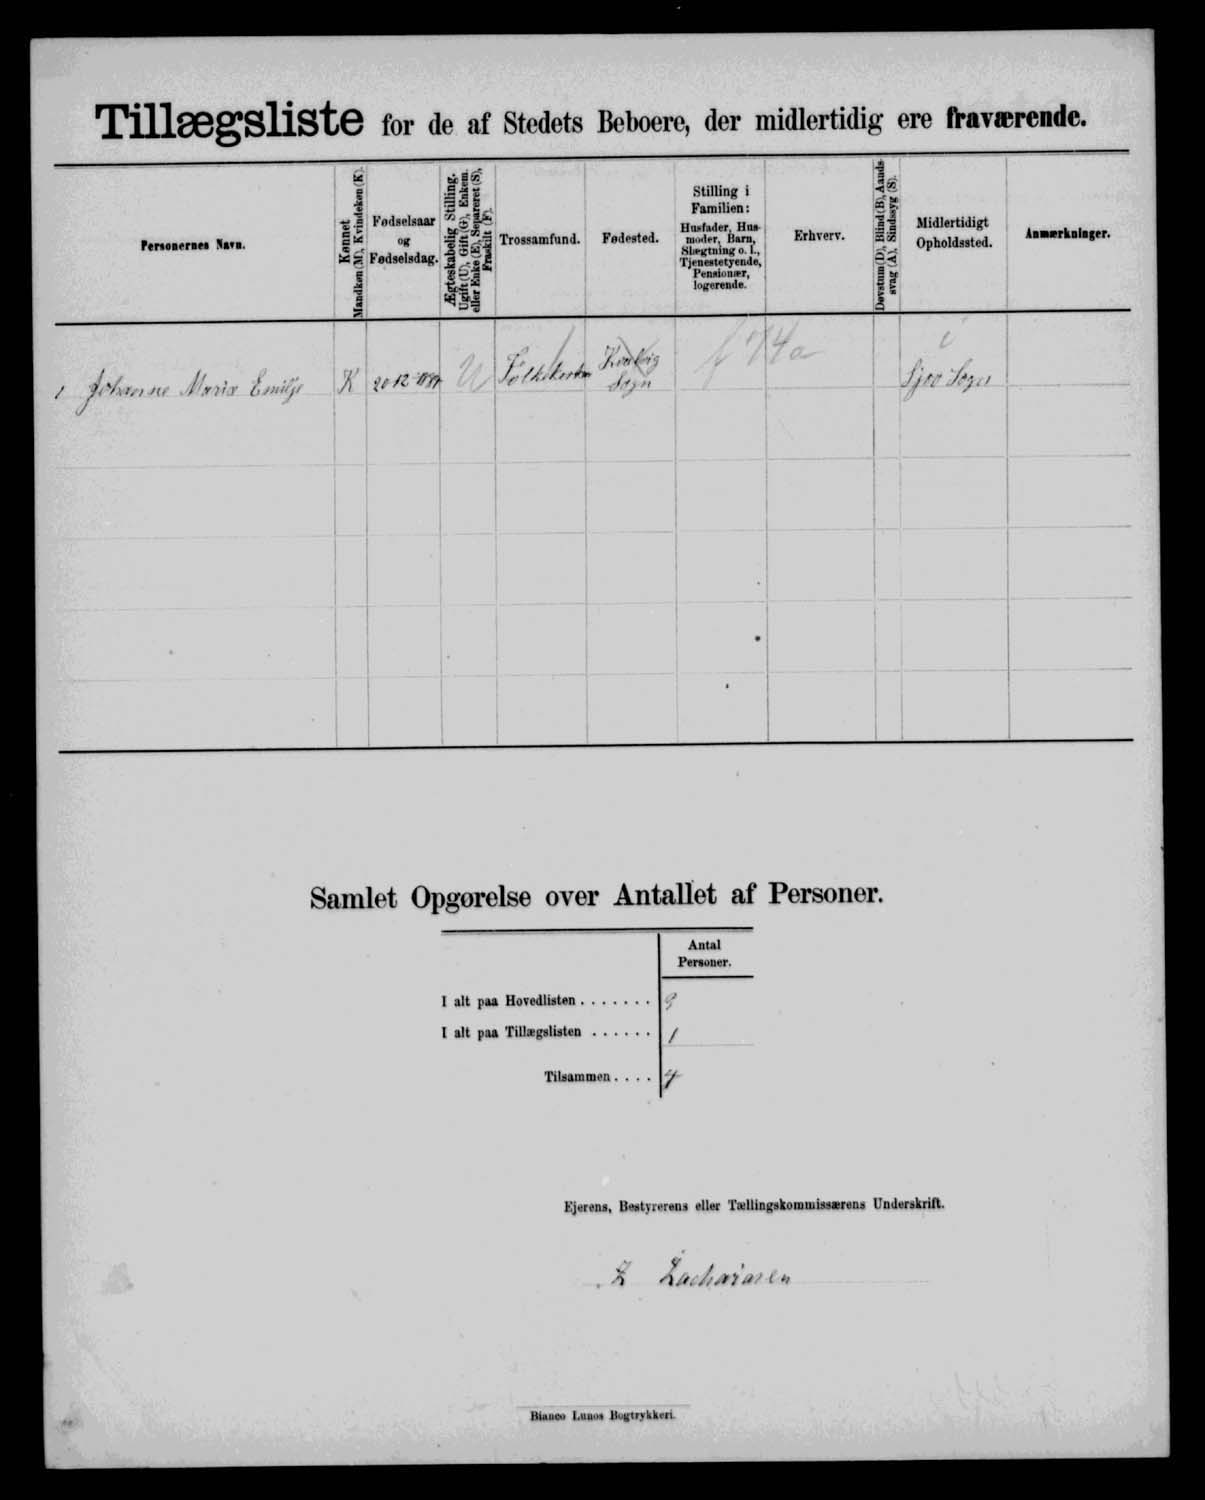 Tillægsliste for de af Stedets Beboere, der midlertidig ere fraværende.
Personernes Navn.
Kønnet
Mandkøn (M), Kvindekøn (K).
Fødselsaar
og
Fødselsdag.
Ægteskabelig Stilling.
Ugift (U), Gift (G), Enkem.
eller Enke (E), Separeret (S),
Fraskilt (F).
Trossamfund.
Fødested.
Stilling i
Familien:
Husfader, Hus-
moder, Barn,
Slægtning o. l.,
Tjenestetyende,
Pensionær,
logerende.
Erhverv.
Døvstum (D), Blind (B), Aands-
svag (A), Sindssyg (S).
Midlertidigt
Opholdssted.
Anmærkninger.
1 Johanne Maria Emilje K 20-12 U Folkekirken
Sogn
f 74a
Sjov Sogn
Samlet Opgørelse over Antallet af Personer.
Antal
Personer.
I alt paa Hovedlisten . . . . . . . 3
I alt paa Tillægslisten . . . . . . 1
Tilsammen . . . . 4
Ejerens, Bestyrerens eller Tællingskommissærens Underskrift.
Z Zachariasen
Bianco Lunos Bogtrykkeri.